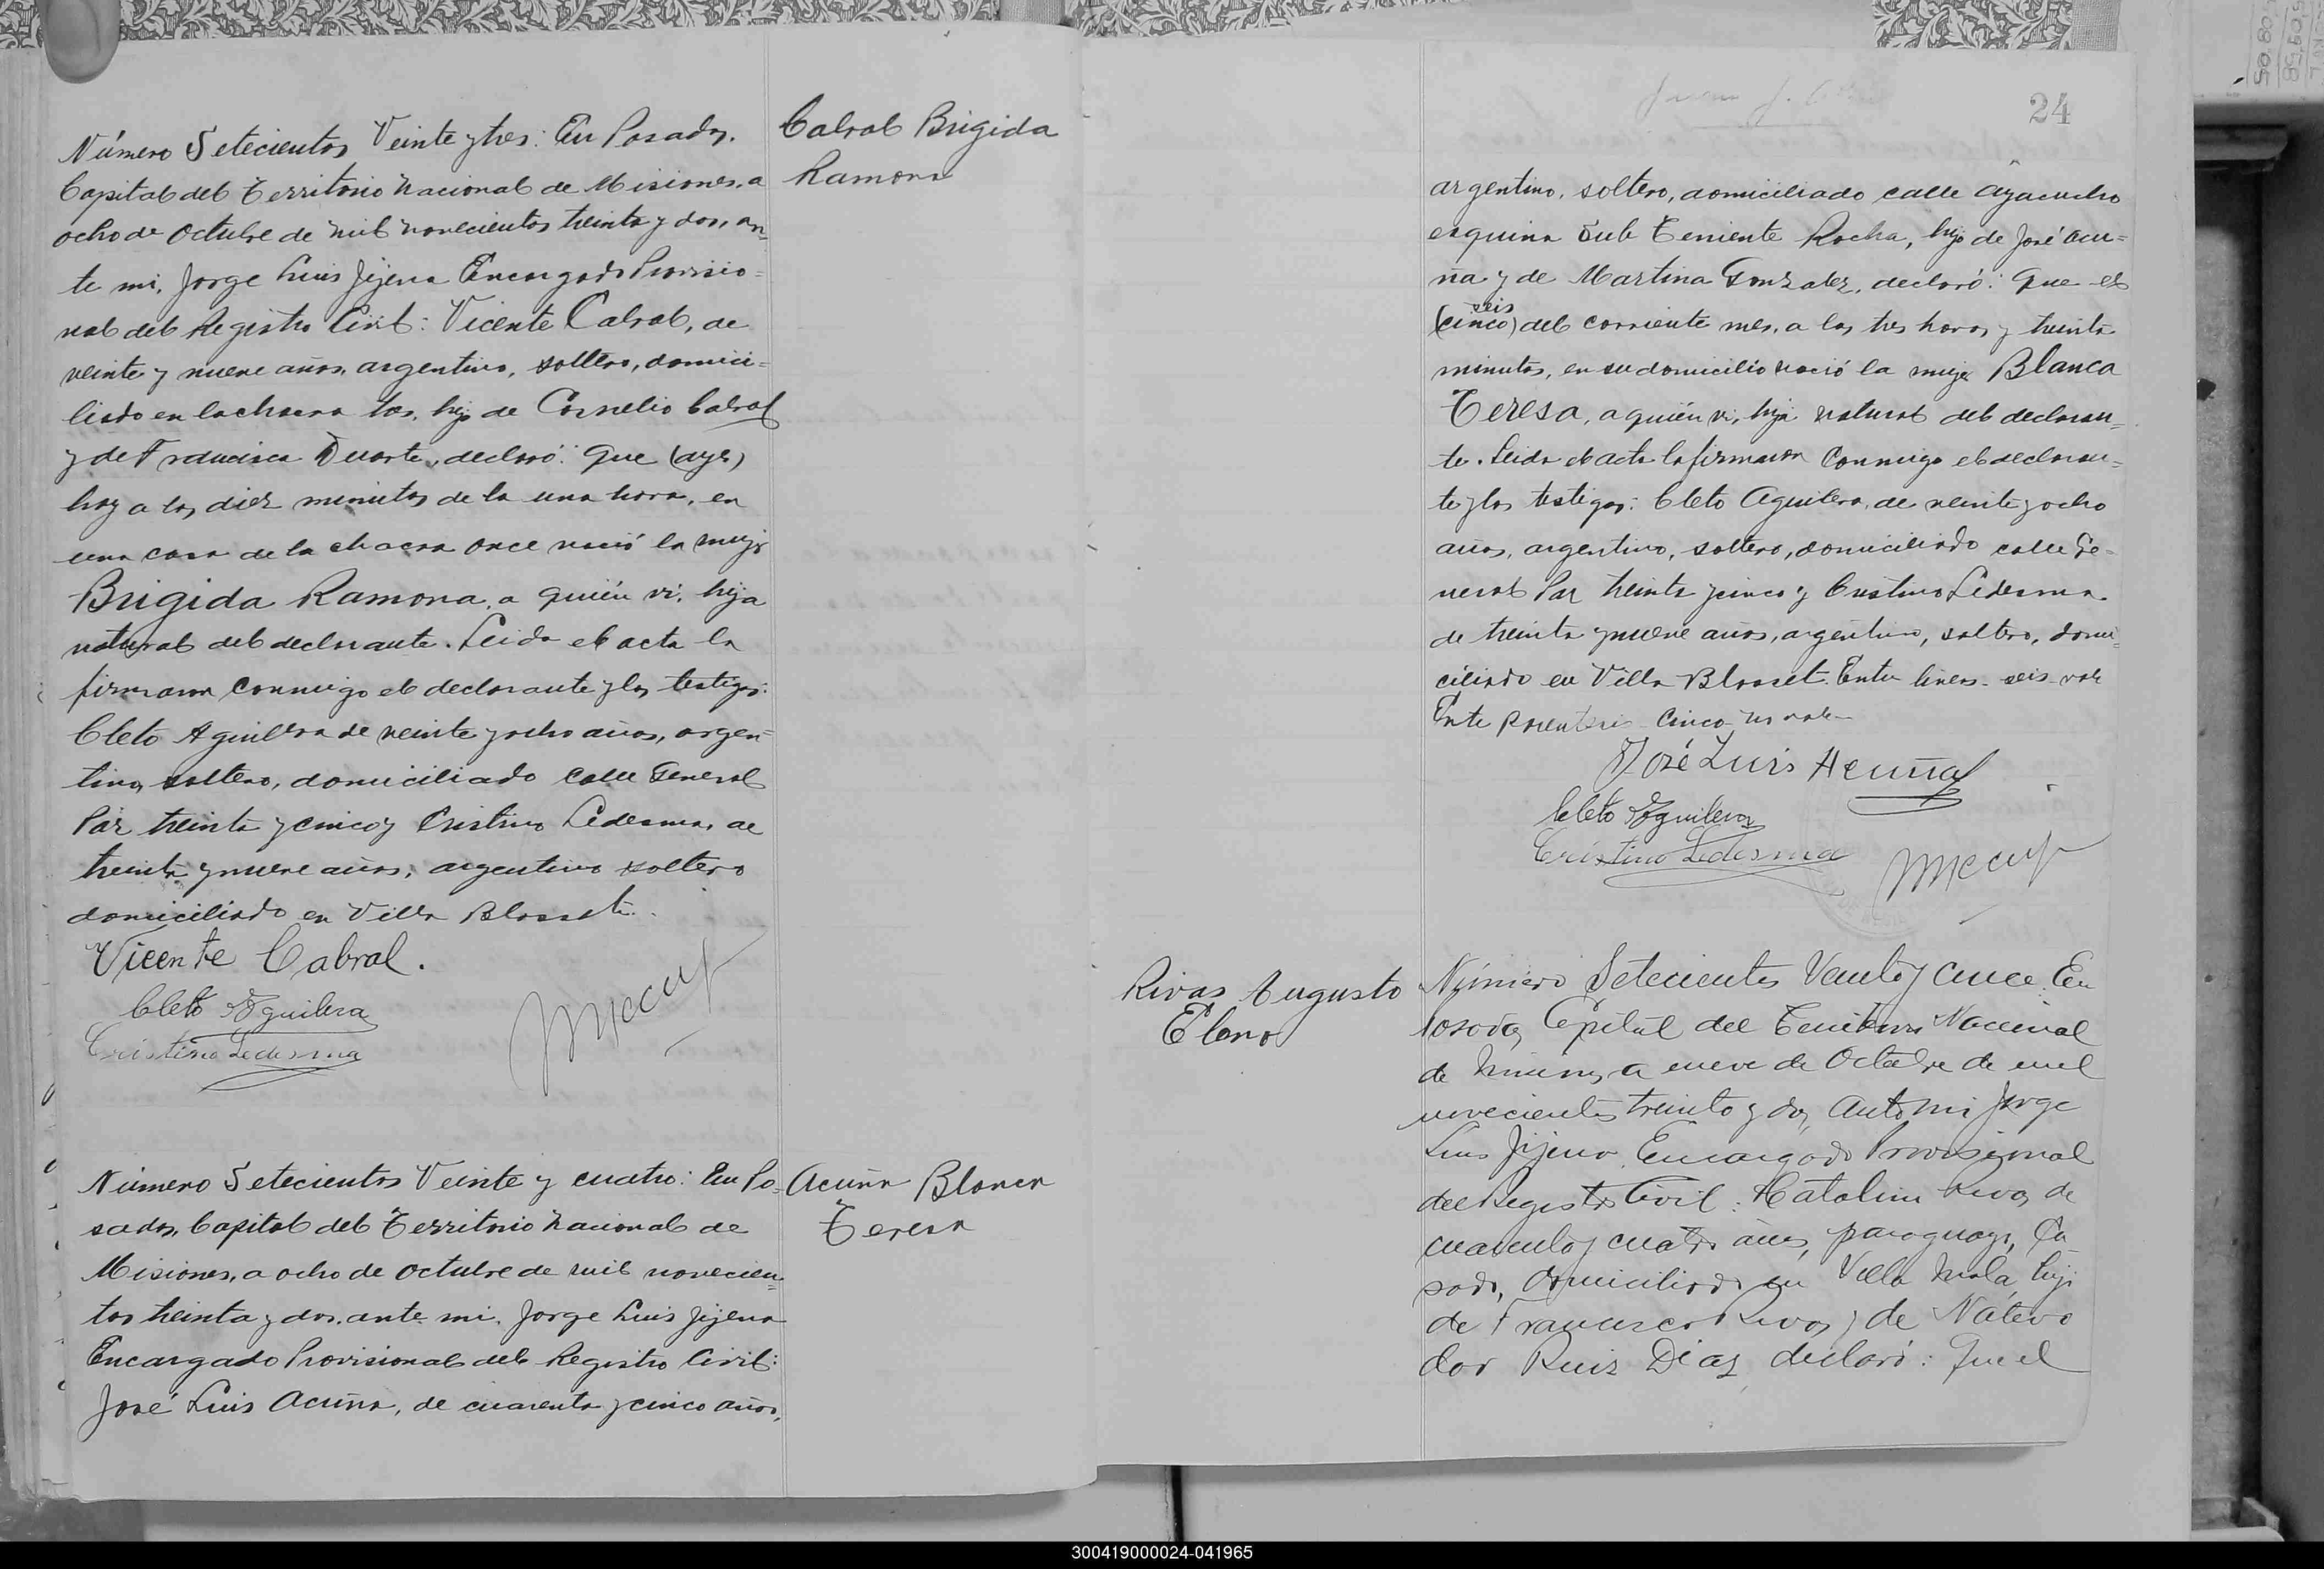 Número Setecientos Veinte y tres: En Posadas,
Capital del Territorio Nacional de Misiones, a
ocho de Octubre de mil novecientos treinta y dos, an-
te mi, Jorge Luis Jijena Encargado Provisio-
nal del Registro Civil: Vicente Cabral, de
veinte y nueve años, argentino, soltero, domici-
liado en la chacra tres, hijo de Cornelio Cabral
y de Francisca Duarte, declaró: Que (ayer)
hoy a los diez minutos de la una hora, en
una casa de la chacra once nació la mujer
Brigida Ramona, a quién vi, hija
natural del declarante. Leida el acta la
firmaron conmigo el declarante y los testigos:
Cleto Aguilera de veinte y ocho años, argen-
tino, soltero, domiciliado calle General
Paz treinta y cinco y Cristino Ledesma, de
treinta y nueve años, argentino soltero
domiciliado en Villa Blosset.
Vicente Cabral.
Cleto Aguilera
Cristino Ledesma
Cabral Brigida
Ramona
Número Setecientos Veinte y cuatro: En Po-
sadas, Capital del Territorio Nacional de
Misiones, a ocho de Octubre de mil novecien-
tos treinta y dos, ante mi, Jorge Luis Jijena
Encargado Provisional del Registro Civil:
José Luis Acuña, de cuarenta y cinco años,
Acuña Blanca
Teresa
24
argentino, soltero, domiciliado calle Ayacucho
esquina Sub Teniente Rocha, hijo de José Acu-
ña y de Martina Gonzalez, declaró: Que el
seis
(cinco) del corriente mes, a las tres horas y treinta
minutos, en su domicilio nació la mujer Blanca
Teresa, a quién vi, hija natural del declaran-
te. Leida el acta la firmaron conmigo el declaran-
te y los testigos: Cleto Aguilera, de veinte y ocho
años, argentino, soltero, domiciliado calle Ge-
neral Paz treinta y cinco y Cristino Ledesma
de treinta y nueve años, argentino, soltero, domi-
ciliado en Villa Blosset. Entre lineas - seis - vale
Entre parentesis - cinco - no vale -
José Luis Acuña
Cleto Aguilera
Cristino Ledesma
Rivas Augusto
Número Setecientos Veinte y cinco: En
Posadas, Capital del Territorio Nacional
de Misiones, a nueve de Octubre de mil
novecientos treinta y dos, ante mi Jorge
Luis Jijena Encargado Provisional
del Registro Civil: Catalino Rivas, de
cuarenta y cuatro años, paraguayo, ca-
sado, domiciliado en Villa Mola, hijo
de Francisco Rivas y de
Ruiz Diaz, declaró: Que el
300419000024-041965